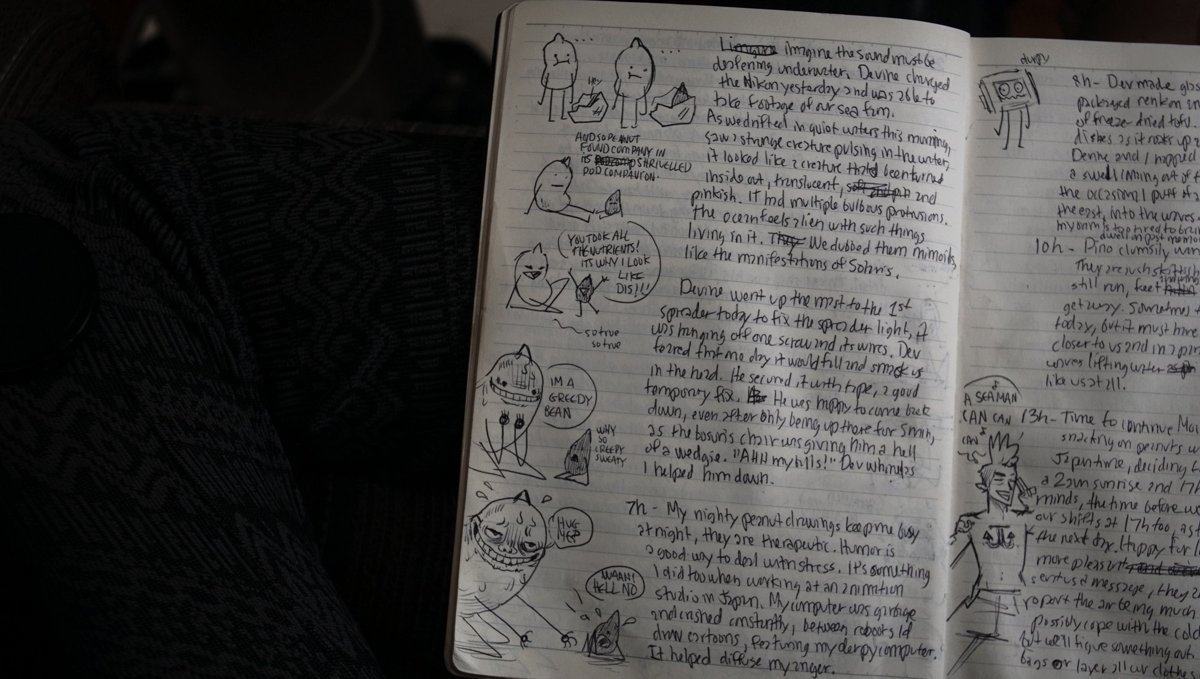 ...
...
Hey
imagine the sound must be
deafening underwater. Devine charged
the Nikon yesterday and was able to
take footage of our sea fam.
As we drifted in quiet waters this morning,
saw a strange creature pulsing in the water,
it looked like a creature that'd been turned
inside out, translucent, and
pinkish. It had multiple bulbous protrusions.
The ocean feels alien with such things
living in it. We dubbed them mimoids,
like the manifestations of Solaris.
Devine went up the mast to the 1st
spreader today to fix the spreader light, it
was hanging off one screw and its wires. Dev
feared that one day it would fall and smack us
in the head. He secured it with tape, a good
temporary fix. He was happy to come back
down, even after only being up there for 5min,
as the bosun's chair was giving him a hell
of a wedgie. "AHH my bills!" Dev whined as
I helped him down.
7h - My nighty peanut drawings keep me busy
at night, they are therapeutic. Humor is
a good way to deal with stress. It's something
I did too when working at an animation
studio in Japan. My computer was garbage
and crashed constantly, between reboots I'd
draw cartoons, featuring my derpy computer.
It helped diffuse my anger.
AND SO PEANUT
FOUND COMPANY IN
ITS SHRIVELLED
POD COMPANION.
YOU TOOK ALL
THE NUTRIENTS!
ITS WHY I LOOK
LIKE
DIS!!!
so true
so true
IM A
GREEDY
BEAN
WHY
SO
CREEPY
SWEATY
HUG
ME?
WAAA!
HELL NO
durpy
8h - Dev made
packaged
of freeze dried tofu.
dishes as it
Devine and I napped
a swell coming out of
the occasion I puff
the east, into the waves
my
10h - Pino clumsily
They are
still run, feet
get away. Sometimes
today, but it must
closer to us and in a
waves lifting water
like us at all.
A SEAMAN
CAN CAN
CAN
13h - Time to continue
snacking on peanuts
Japan time, deciding
a 2am sunrise and
minds, the time before
our shifts at 17h too,
the next day. Happy for
more pleasant
sent us a message, they
report the air being much
possibly cope with the cold
but we'll figure something out
bags or layer all our clothes